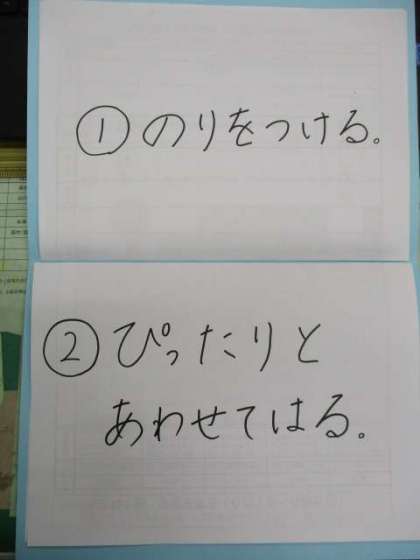 ①のりをつける。
②ぴったりと
あわせてはる。